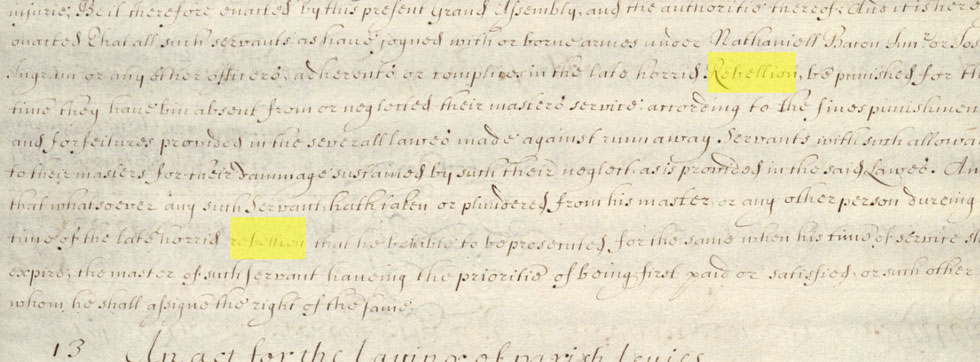 injurie, Be it therefore enacted by this present Grand Assembly, and the authoritie thereof, And it is here
enacted That all such servants as have joyned with or borne armes under Nathaniell Bacon Junr. or Jos
Ingram or any other officers, adherents, or complices in the late horrid Rebellion, be punished for th
time they have bin absent from or neglected their masters service according to the fines punishmen
and forfeitures provided in the severall lawes made against runn away Servants with such allowa
to their masters for their dammage sustained by such their neglect as is provided in the said Lawes. An
that whatsoever any such servant hath taken or plundered from his master, or any other person dureing
time of the late horrid rebellion that he be lable to be prosecuted for the same when his time of service sh
expire, the master of such servant haveing the prioritie of being first paid or satisfied, or such other
whom he shall assigne the right of the same
13 An act for the Laying of parish Levies